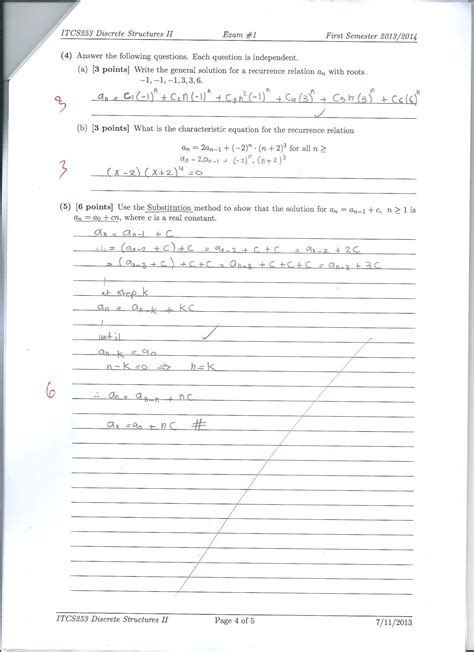 ITCS253 Discrete Structures II Exam #1 First Semester 2013/2014
(4) Answer the following questions. Each question is independent.
(a) [3 points] Write the general solution for a recurrence relation aₙ with roots
−1, −1, −1, 3, 3, 6.
3 aₙ = C₁(-1)ⁿ + C₂n(-1)ⁿ + C₃n²(-1)ⁿ + C₄(3)ⁿ + C₅n(3)ⁿ + C₆(6)ⁿ
(b) [3 points] What is the characteristic equation for the recurrence relation
aₙ = 2aₙ₋₁ + (−2)ⁿ · (n + 2)³ for all n ≥
aₙ - 2aₙ₋₁ = (-2)ⁿ . (n+2)³
3 (x-2)(x+2)⁴ = 0
(5) [6 points] Use the Substitution method to show that the solution for aₙ = aₙ₋₁ + c, n ≥ 1 is
aₙ = a₀ + cn, where c is a real constant.
aₙ = aₙ₋₁ + C
= (aₙ₋₂ + C) + C = aₙ₋₂ + C + C = aₙ₋₂ + 2C
= (aₙ₋₃ + C) + C + C = aₙ₋₃ + C + C + C = aₙ₋₃ + 3C
at step k
aₙ = aₙ₋ₖ + kC
until
aₙ₋ₖ = a₀
n-k=0 ⇒ n=k
6 ∴ aₙ = aₙ₋ₙ + nC
aₙ = a₀ + nC #
ITCS253 Discrete Structures II Page 4 of 5 7/11/2013